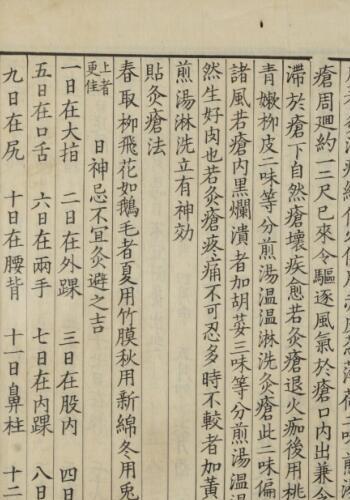 瘡周廻約一二尺已來令驅逐風氣於瘡口内出兼令
滯於瘡下自然瘡壞疾愈若灸瘡退火痂後用桃
青嫩柳皮二味等分煎湯温温淋洗灸瘡此二味偏
諸風若瘡内黑爛潰者加胡荽三味等分煎湯温温
然生好肉也若灸瘡疼痛不可忍多時不較者加黄
煎湯淋洗立有神効
貼灸瘡法
春取柳飛花如鵝毛者夏用竹膜秋用新綿冬用兎
上者
更佳
日神忌不宜灸避之吉
一日在大指 二日在外踝 三日在股内 四日
五日在口舌 六日在兩手 七日在内踝 八日
九日在尻 十日在腰背 十一日鼻柱 十二